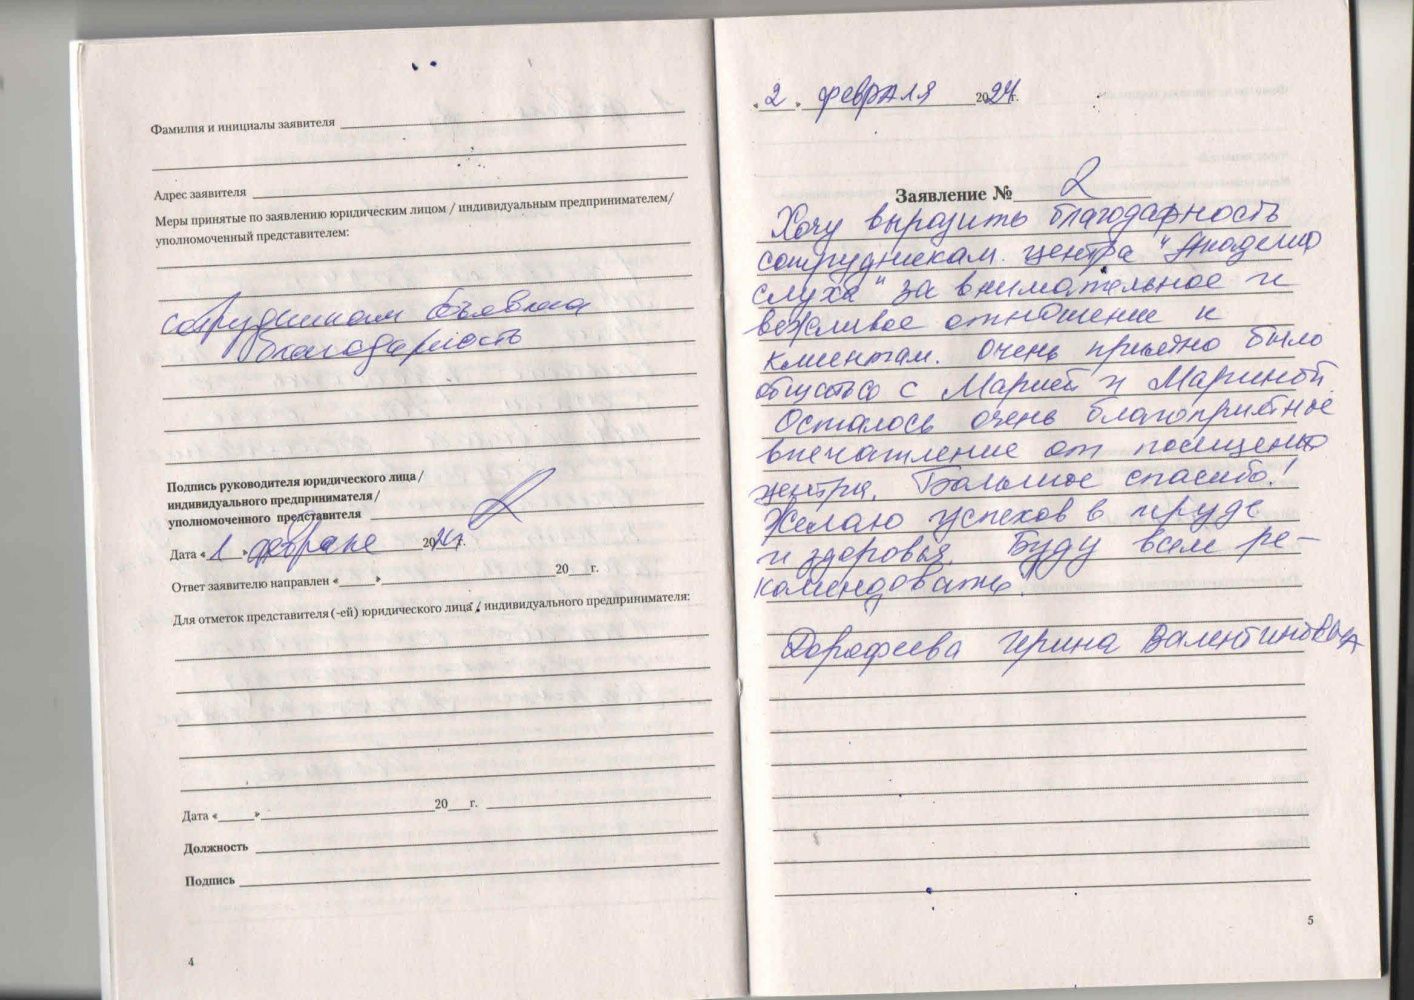 Фамилия и инициалы заявителя
Адрес заявителя
Меры принятые по заявлению юридическим лицом / индивидуальным предпринимателем/
уполномоченный представителем:
сотрудникам объявлена
благодарность
Подпись руководителя юридического лица/
индивидуального предпринимателя/
уполномоченного представителя
Дата «1» февраля 2024г.
Ответ заявителю направлен «___»___20___г.
Для отметок представителя (-ей) юридического лица / индивидуального предпринимателя:
Дата «___»___20___г.
Должность
Подпись
4
«2» февраля 2024г.
Заявление № 2
Хочу выразить благодарность
сотрудникам центра "Академия
слуха" за внимательное и
вежливое отношение к
клиентам. Очень приятно было
общаться с Марией и Мариной.
Осталось очень благоприятное
впечатление от посещения
центра. Большое спасибо!
Желаю успехов в труде
и здоровья. Буду всем ре-
комендовать!
Дорофеева Ирина Валентиновна
5